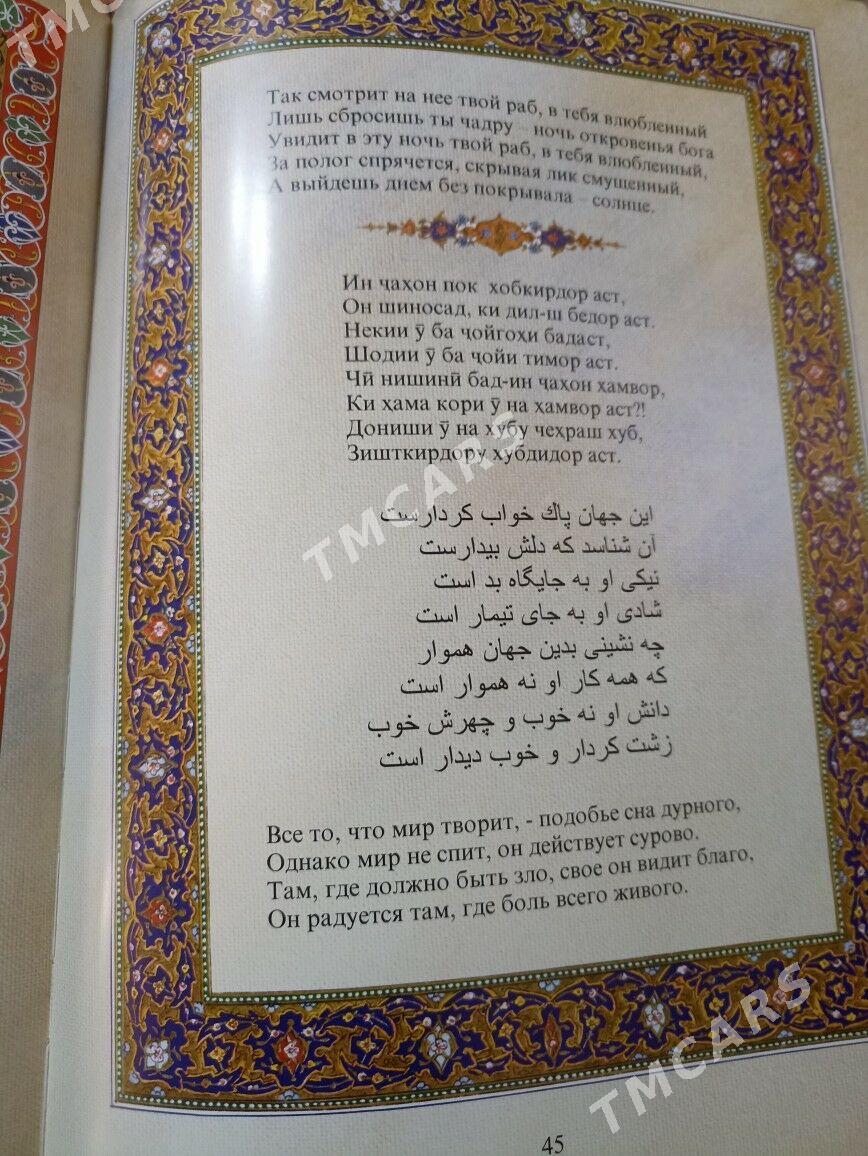 Так смотрит на нее твой раб, в тебя влюбленный
Лишь сбросишь ты чадру – ночь откровенья бога
Увидит в эту ночь твой раб, в тебя влюбленный,
За полог спрячется, скрывая лик смущенный,
А выйдешь днем без покрывала – солнце.
Ин ҷаҳон пок хобкирдор аст,
Он шиносад, ки дил-ш бедор аст.
Некии ӯ ба ҷойгоҳи бадаст,
Шодии ӯ ба ҷойи тимор аст.
Чӣ нишинӣ бад-ин ҷаҳон ҳамвор,
Ки ҳама кори ӯ на ҳамвор аст?!
Дониши ӯ на хубу чеҳраш хуб,
Зишткирдору хубдидор аст.
این جهان پاك خواب کردارست
آن شناسد که دلش بیدارست
نیکی او به جایگاه بد است
شادی او به جای تیمار است
چه نشینی بدین جهان هموار
که همه کار او نه هموار است
دانش او نه خوب و چهرش خوب
زشت کردار و خوب دیدار است
Все то, что мир творит, - подобье сна дурного,
Однако мир не спит, он действует сурово.
Там, где должно быть зло, свое он видит благо,
Он радуется там, где боль всего живого.
45
TMCARS
TMCARS
TMCARS